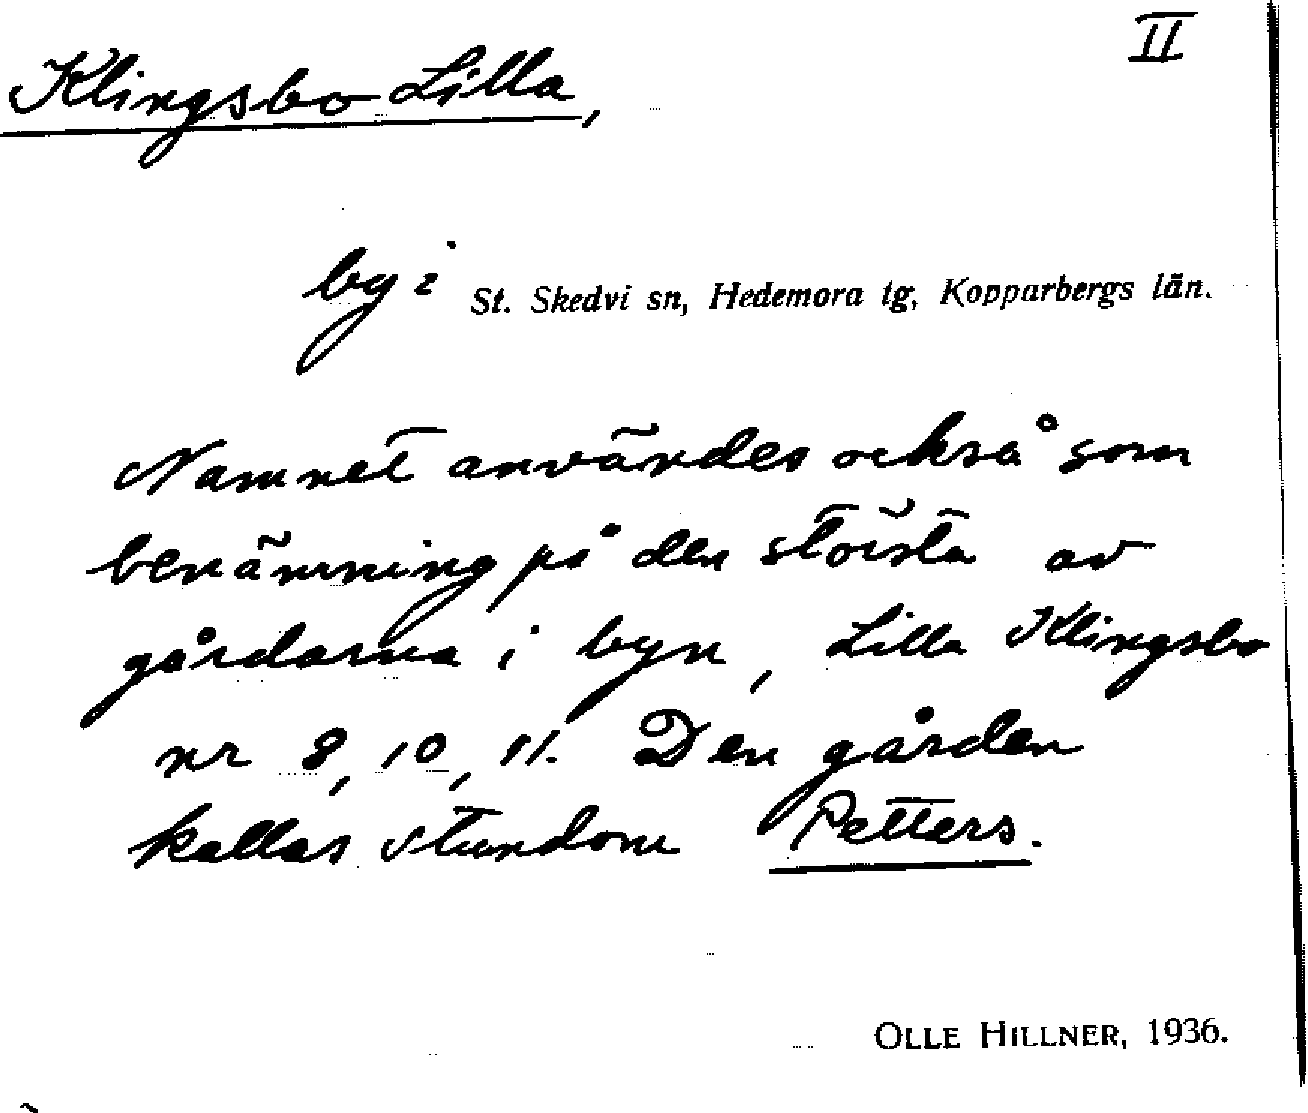 II
Klingsbo Lilla,
by i St. Skedvi sn, Hedemora tg, Kopparbergs län.
Namnet användes också som
benämning på den största av
gårdarna i byn, Lilla Klingsbo
nr 8, 10, 11. Den gården
kallas stundom Petters.
OLLE HILLNER, 1936.